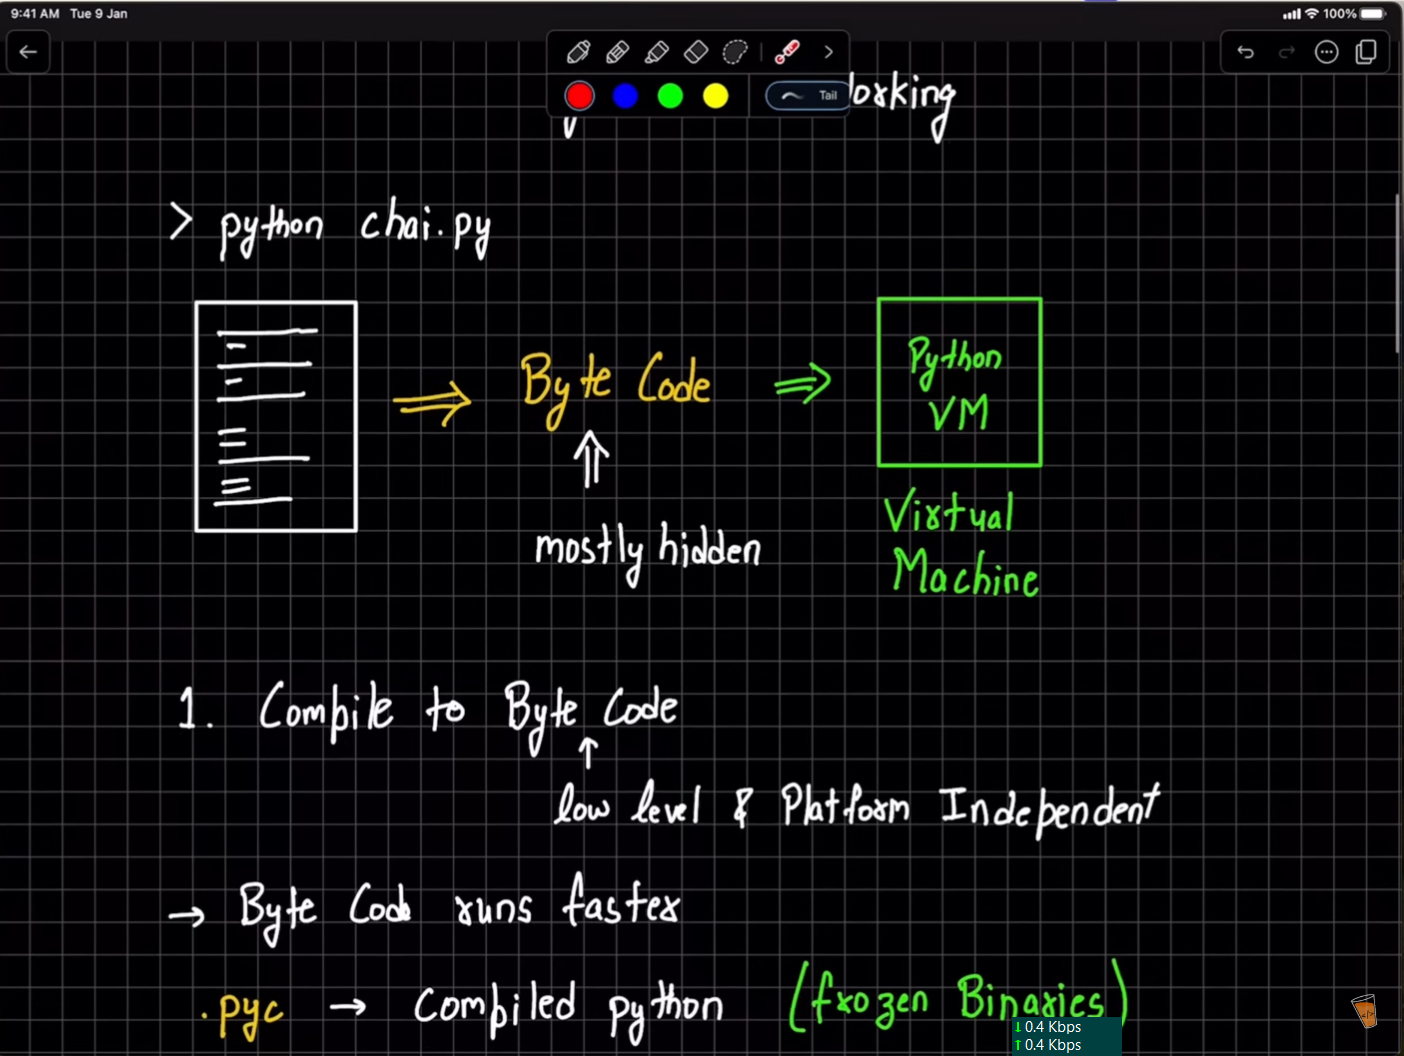 9:41 AM Tue 9 Jan
100%
Tail
orking
> python chai.py
Byte Code
Python
VM
mostly hidden
Virtual
Machine
1. Compile to Byte Code
low level & Platform Independent
→ Byte Code runs faster
.pyc → Compiled python (frozen Binaries)
↓ 0.4 Kbps
↑ 0.4 Kbps